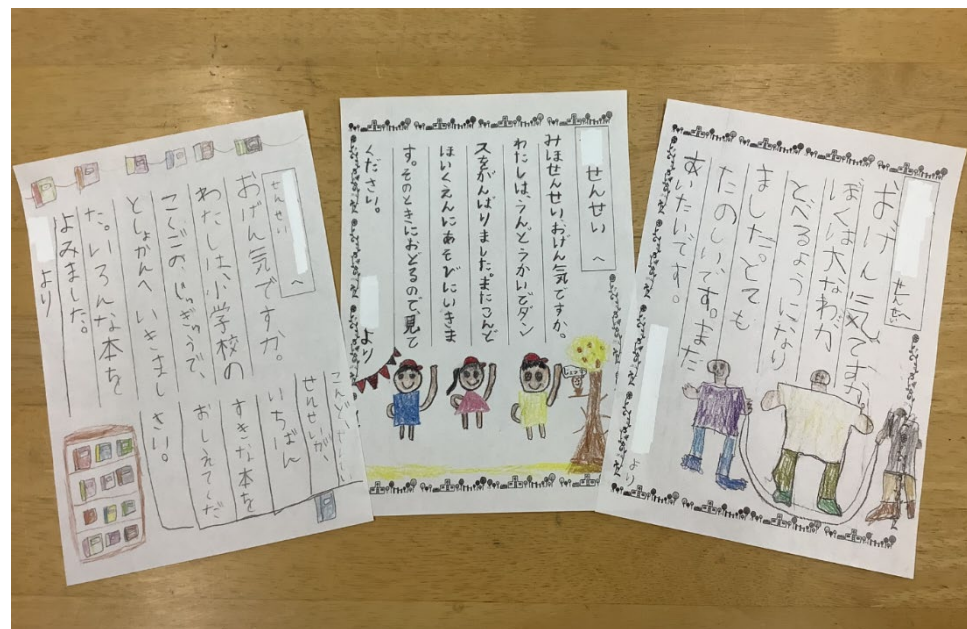 せんせい へ
おげん気ですか。
わたしは、小学校の
こくごの、じゅぎょうで、
としょかんへ いきまし
た。いろんな本を
よみました。
こんど
せんせいが、
いちばん
すきな本を
おしえてくだ
さい。
より
せんせい へ
みほせんせい、おげん気ですか。
わたしは、うんどうかいでダン
スをがんばりました。またこんど
ほいくえんにあそびにいきま
す。そのときにおどるので、見て
ください。
より
せんせい
おげん気ですか。
ぼくは大なわが
とべるようになり
ました。とても
たのしいです。また
あいたいです。
より